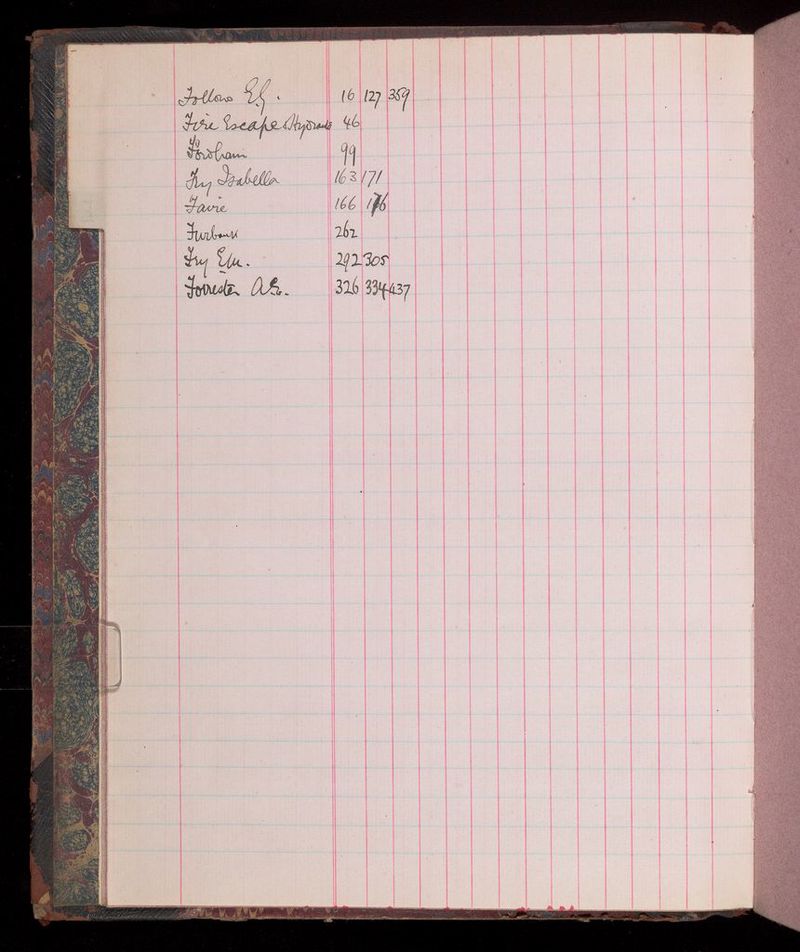 Follows E.G. 16 127 359
Fire Escape & Hydrants 46
Fordham 99
Fry Isabella 163 171
Favre 166 176
Furbank 262
Fry 292 305
Forrester A.G. 326 334 437